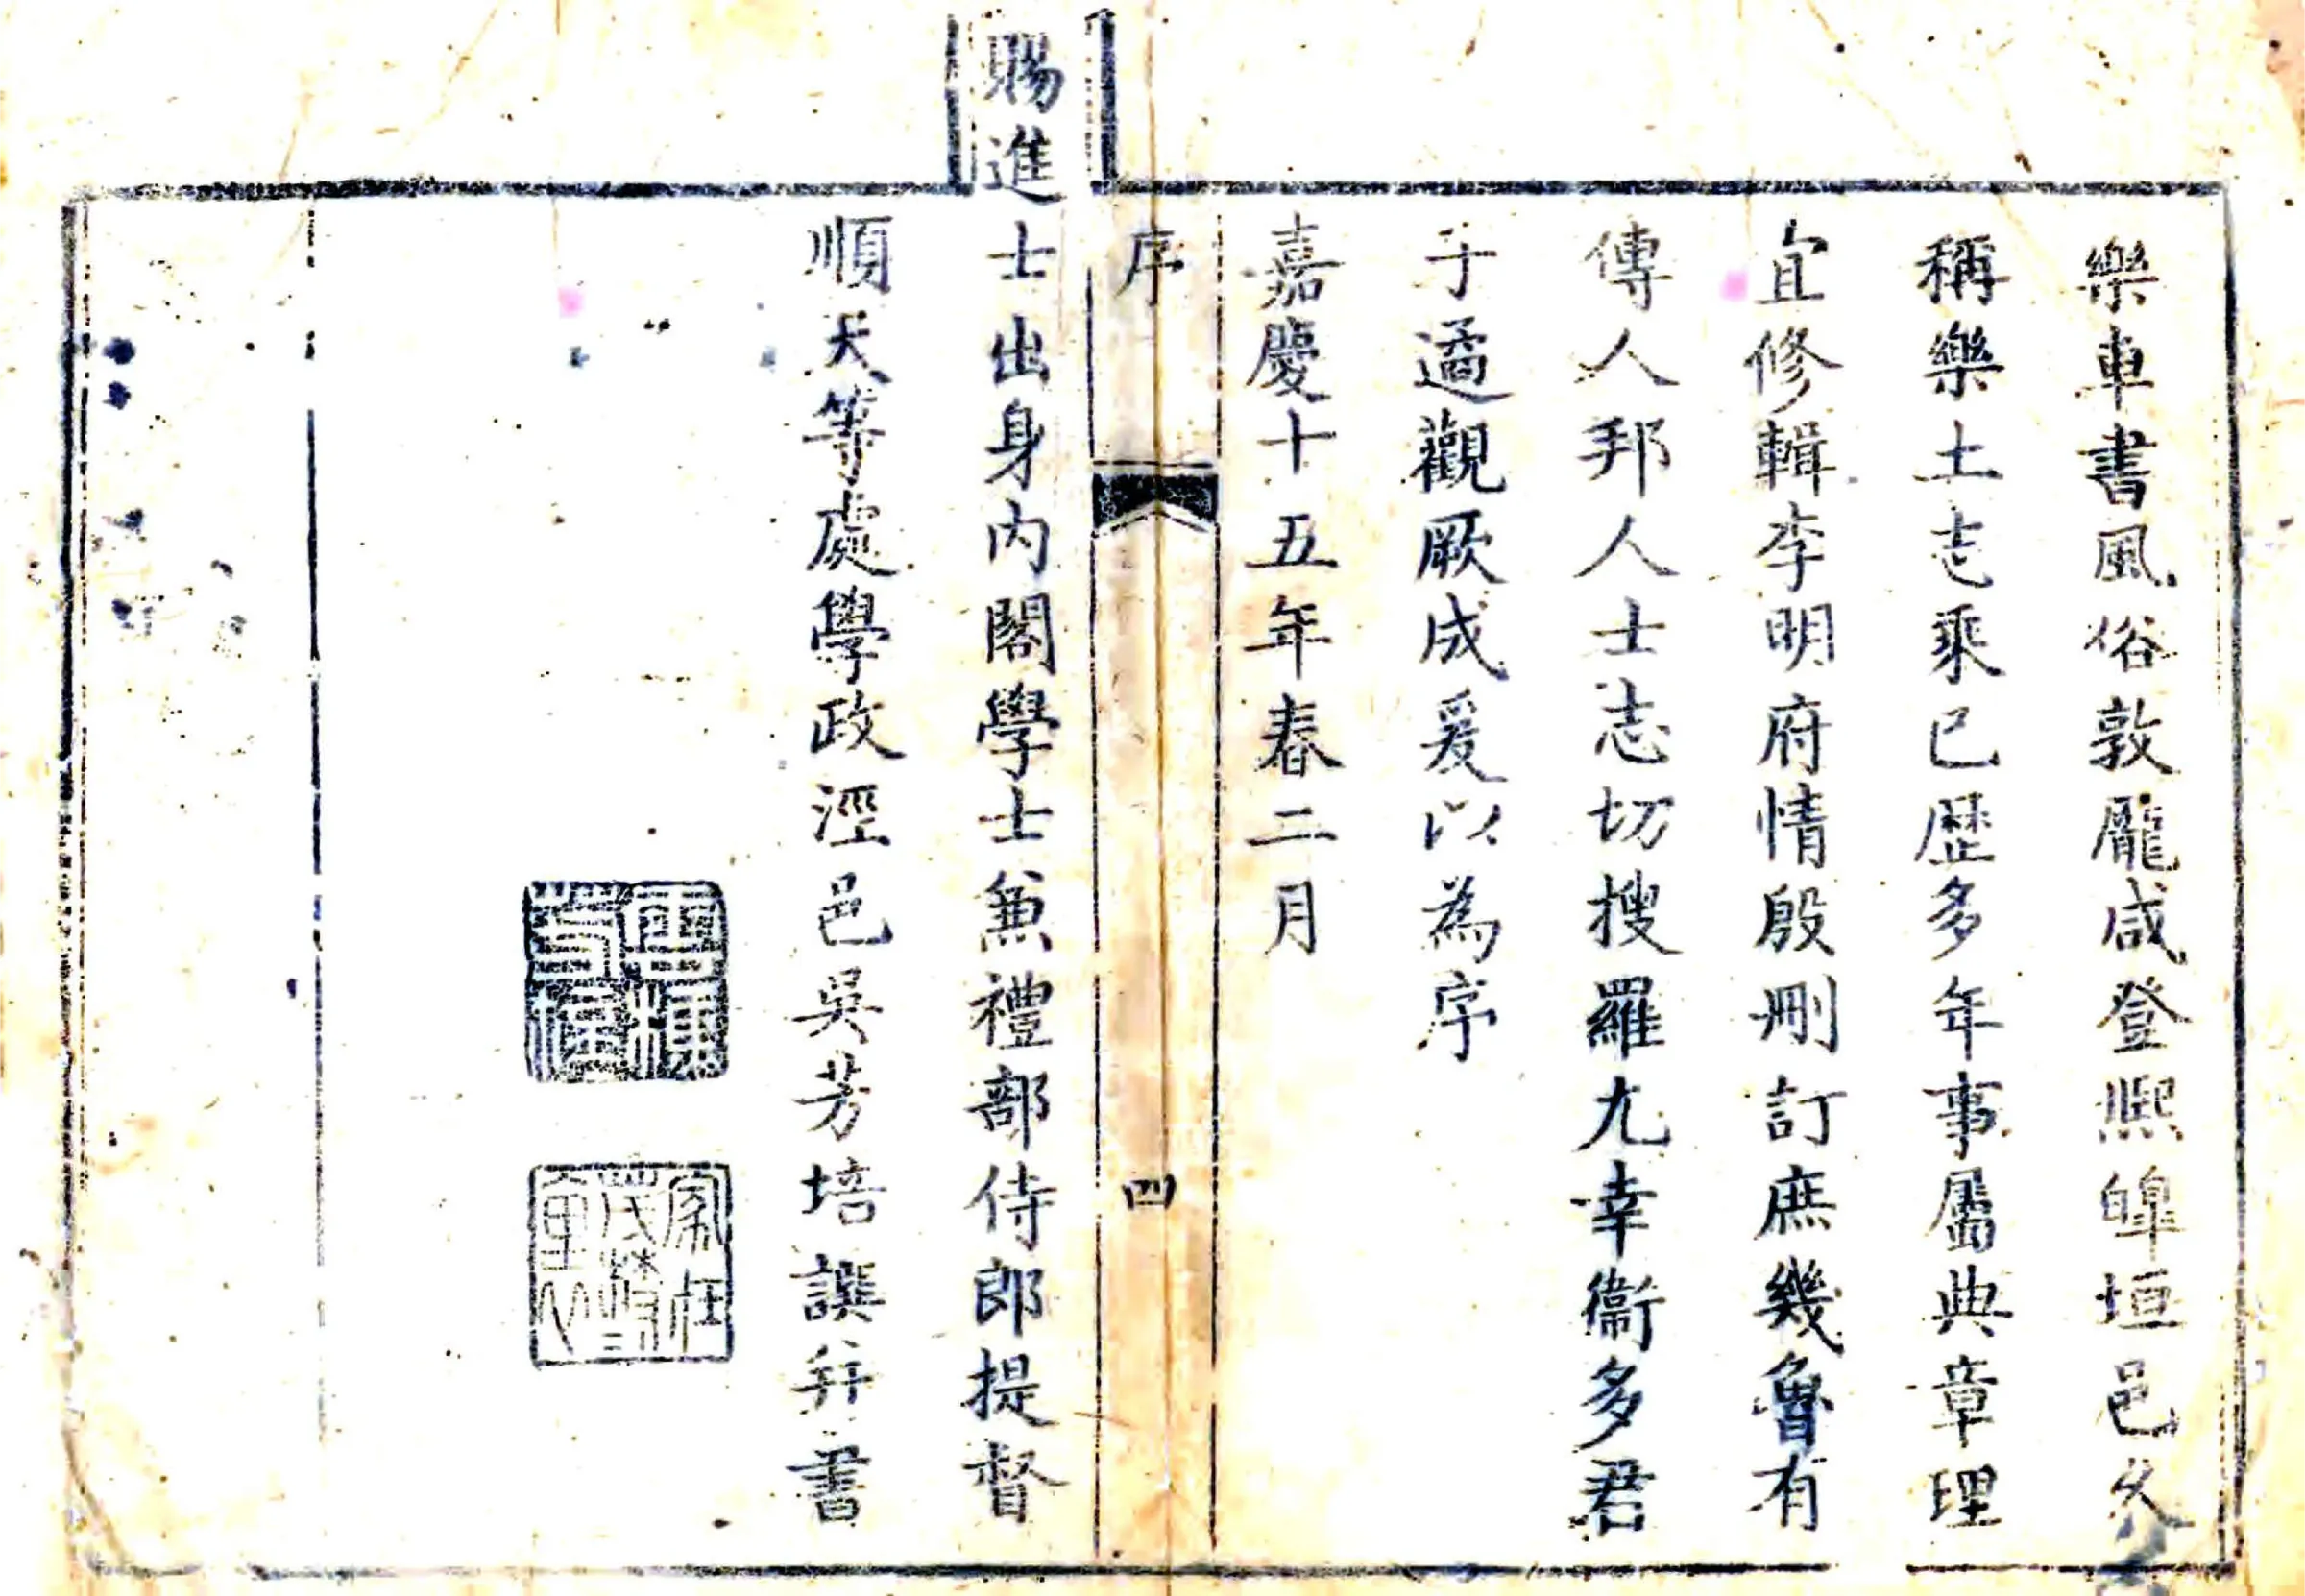 樂車書風俗敦龐咸登熈皞垣邑久
稱樂土志乘已歷多年事屬典章理
宜修輯李明府情殷刪訂庶幾魯有
傳人邦人士志切搜羅尤幸衞多君
子遹觀厥成爰以為序
嘉慶十五年春二月
序
四
賜進士出身内閣學士兼禮部侍郎提督
順天等處學政涇邑吳芳培譔并書